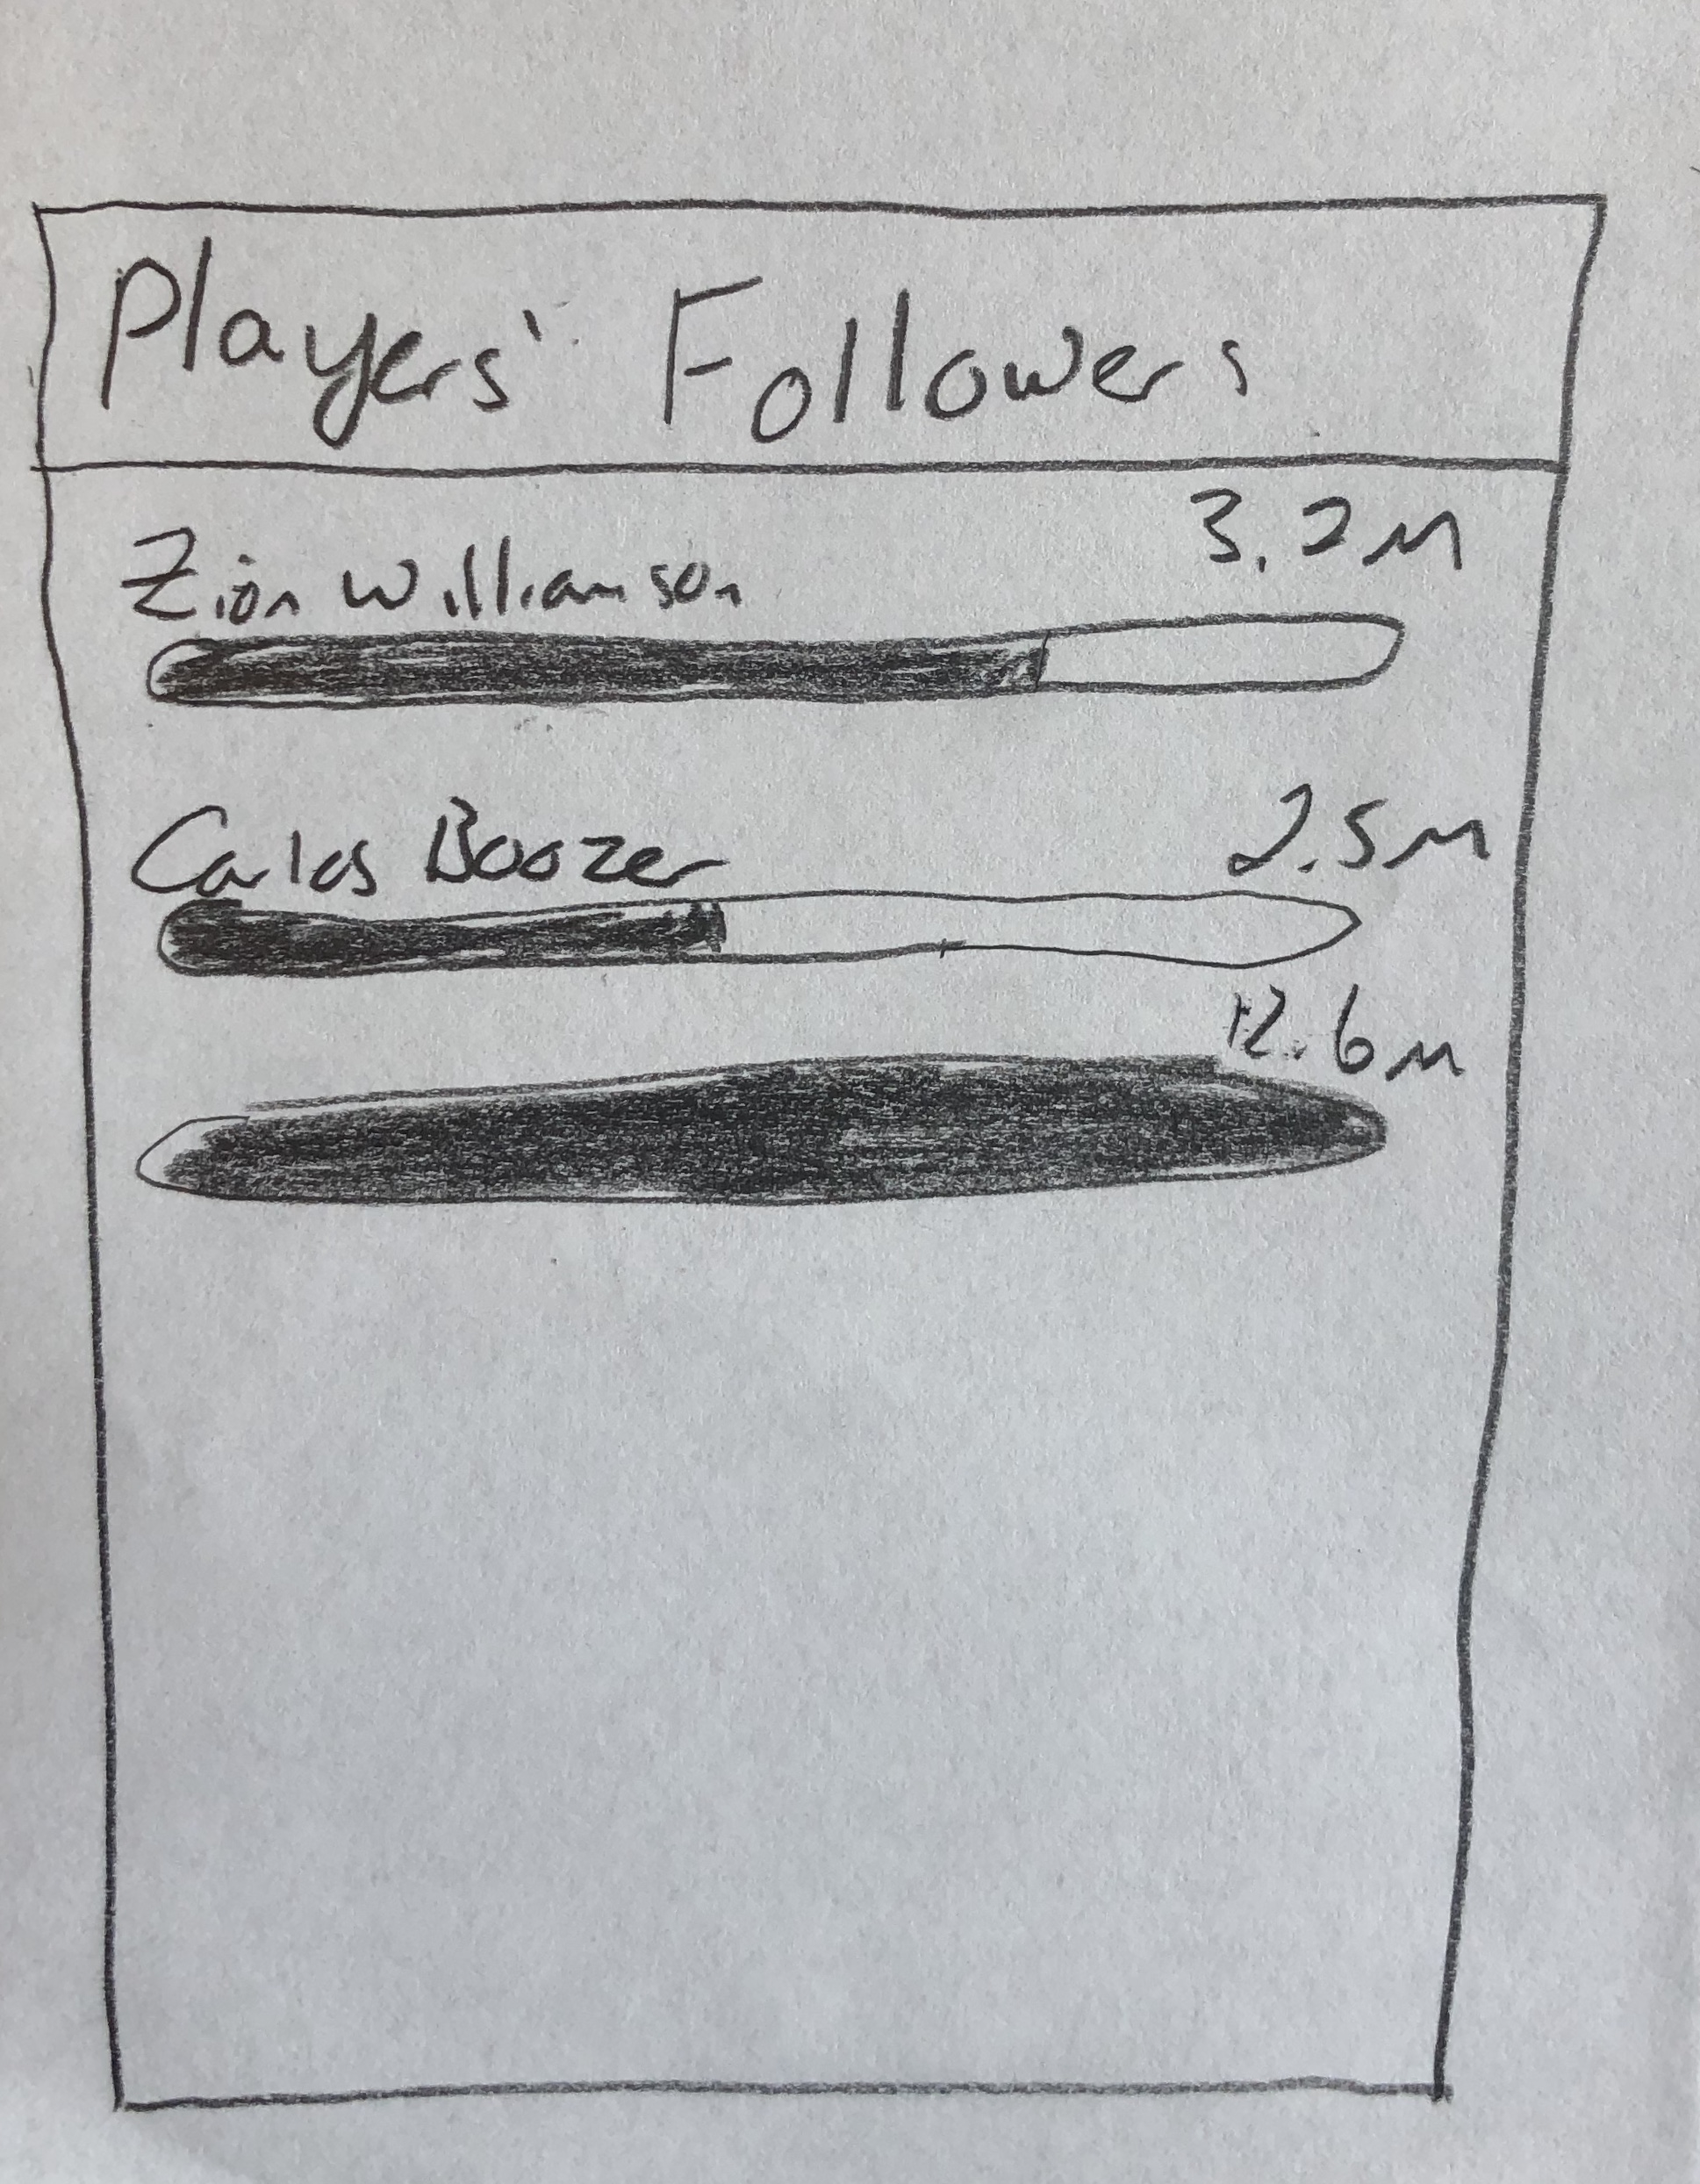 Players' Followers
Zion Williamson 3.2M
Carlos Boozer 2.5M
12.6M